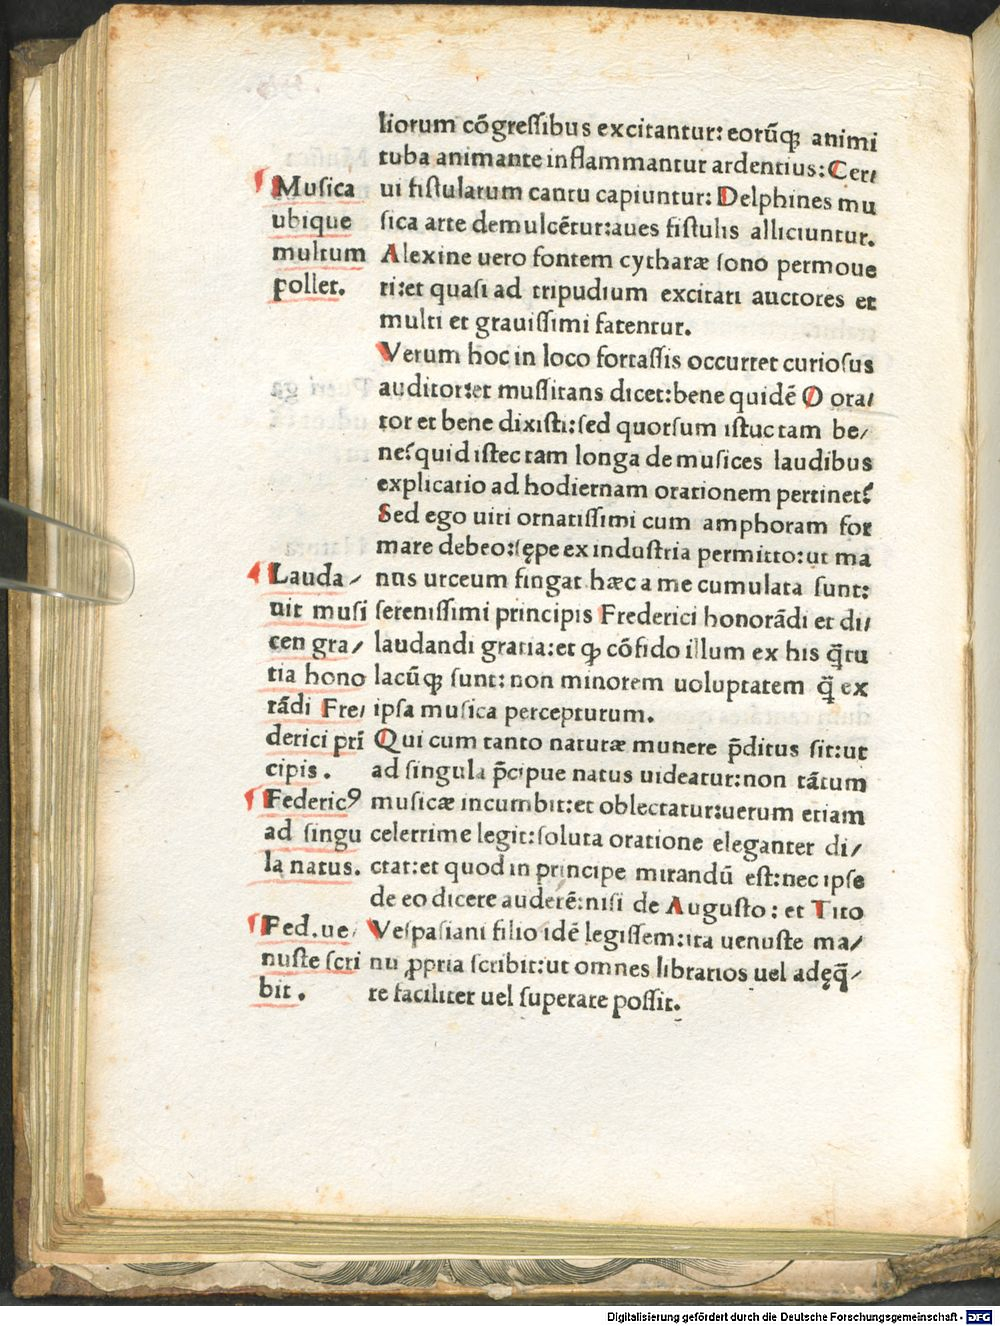 liorum cõgreſſibus excitantur: eorũqꝫ animi
tuba animante inflammantur ardentius: Cer/
Musica
ui fiſtularum cantu capiuntur: Delphines mu
ubique
ſica arte demulcẽtur: aues fiſtulis alliciuntur.
multum
Alexine uero fontem cytharæ ſono permoue
pollet.
ri: et quaſi ad tripudium excitari auctores et
multi et grauiſſimi fatentur.
Verum hoc in loco fortaſſis occurret curioſus
auditor: et muſſitans dicet: bene quidẽ O ora/
tor et bene dixiſti: ſed quorſum iſtuc tam be/
ne? quid iſtec tam longa de muſices laudibus
explicatio ad hodiernam orationem pertinet?
Sed ego uiri ornatiſſimi cum amphoram for
mare debeo: ſępe ex induſtria permitto: ut ma
Lauda/
nus urceum fingat hæc a me cumulata ſunt:
uit muſi
ſereniſſimi principis Frederici honorãdi et di/
cen gra/
laudandi gratia: et ꝙ cõfido illum ex his q̃tu
tia hono
lacũqꝫ ſunt: non minorem uoluptatem q̃ ex
rãdi Fre/
ipſa muſica percepturum.
derici prĩ
Qui cum tanto naturæ munere p̃ditus ſit: ut
cipis.
ad ſingula p̃cipue natus uideatur: non tãtum
Federicꝰ
muſicæ incumbit: et oblectatur: uerum etiam
ad ſingu
celerrime legit: ſoluta oratione eleganter di/
la natus.
ctat: et quod in principe mirandũ eſt: nec ipſe
de eo dicere auderẽ: niſi de Auguſto: et Tito
Fed. ue/
Veſpaſiani filio idẽ legiſſem: ita uenuſte ma/
nuſte ſcri
nu ꝓpria ſcribit: ut omnes librarios uel adęq̃/
bit.
re faciliter uel ſuperare poſſit.
Digitalisierung gefördert durch die Deutsche Forschungsgemeinschaft - DFG